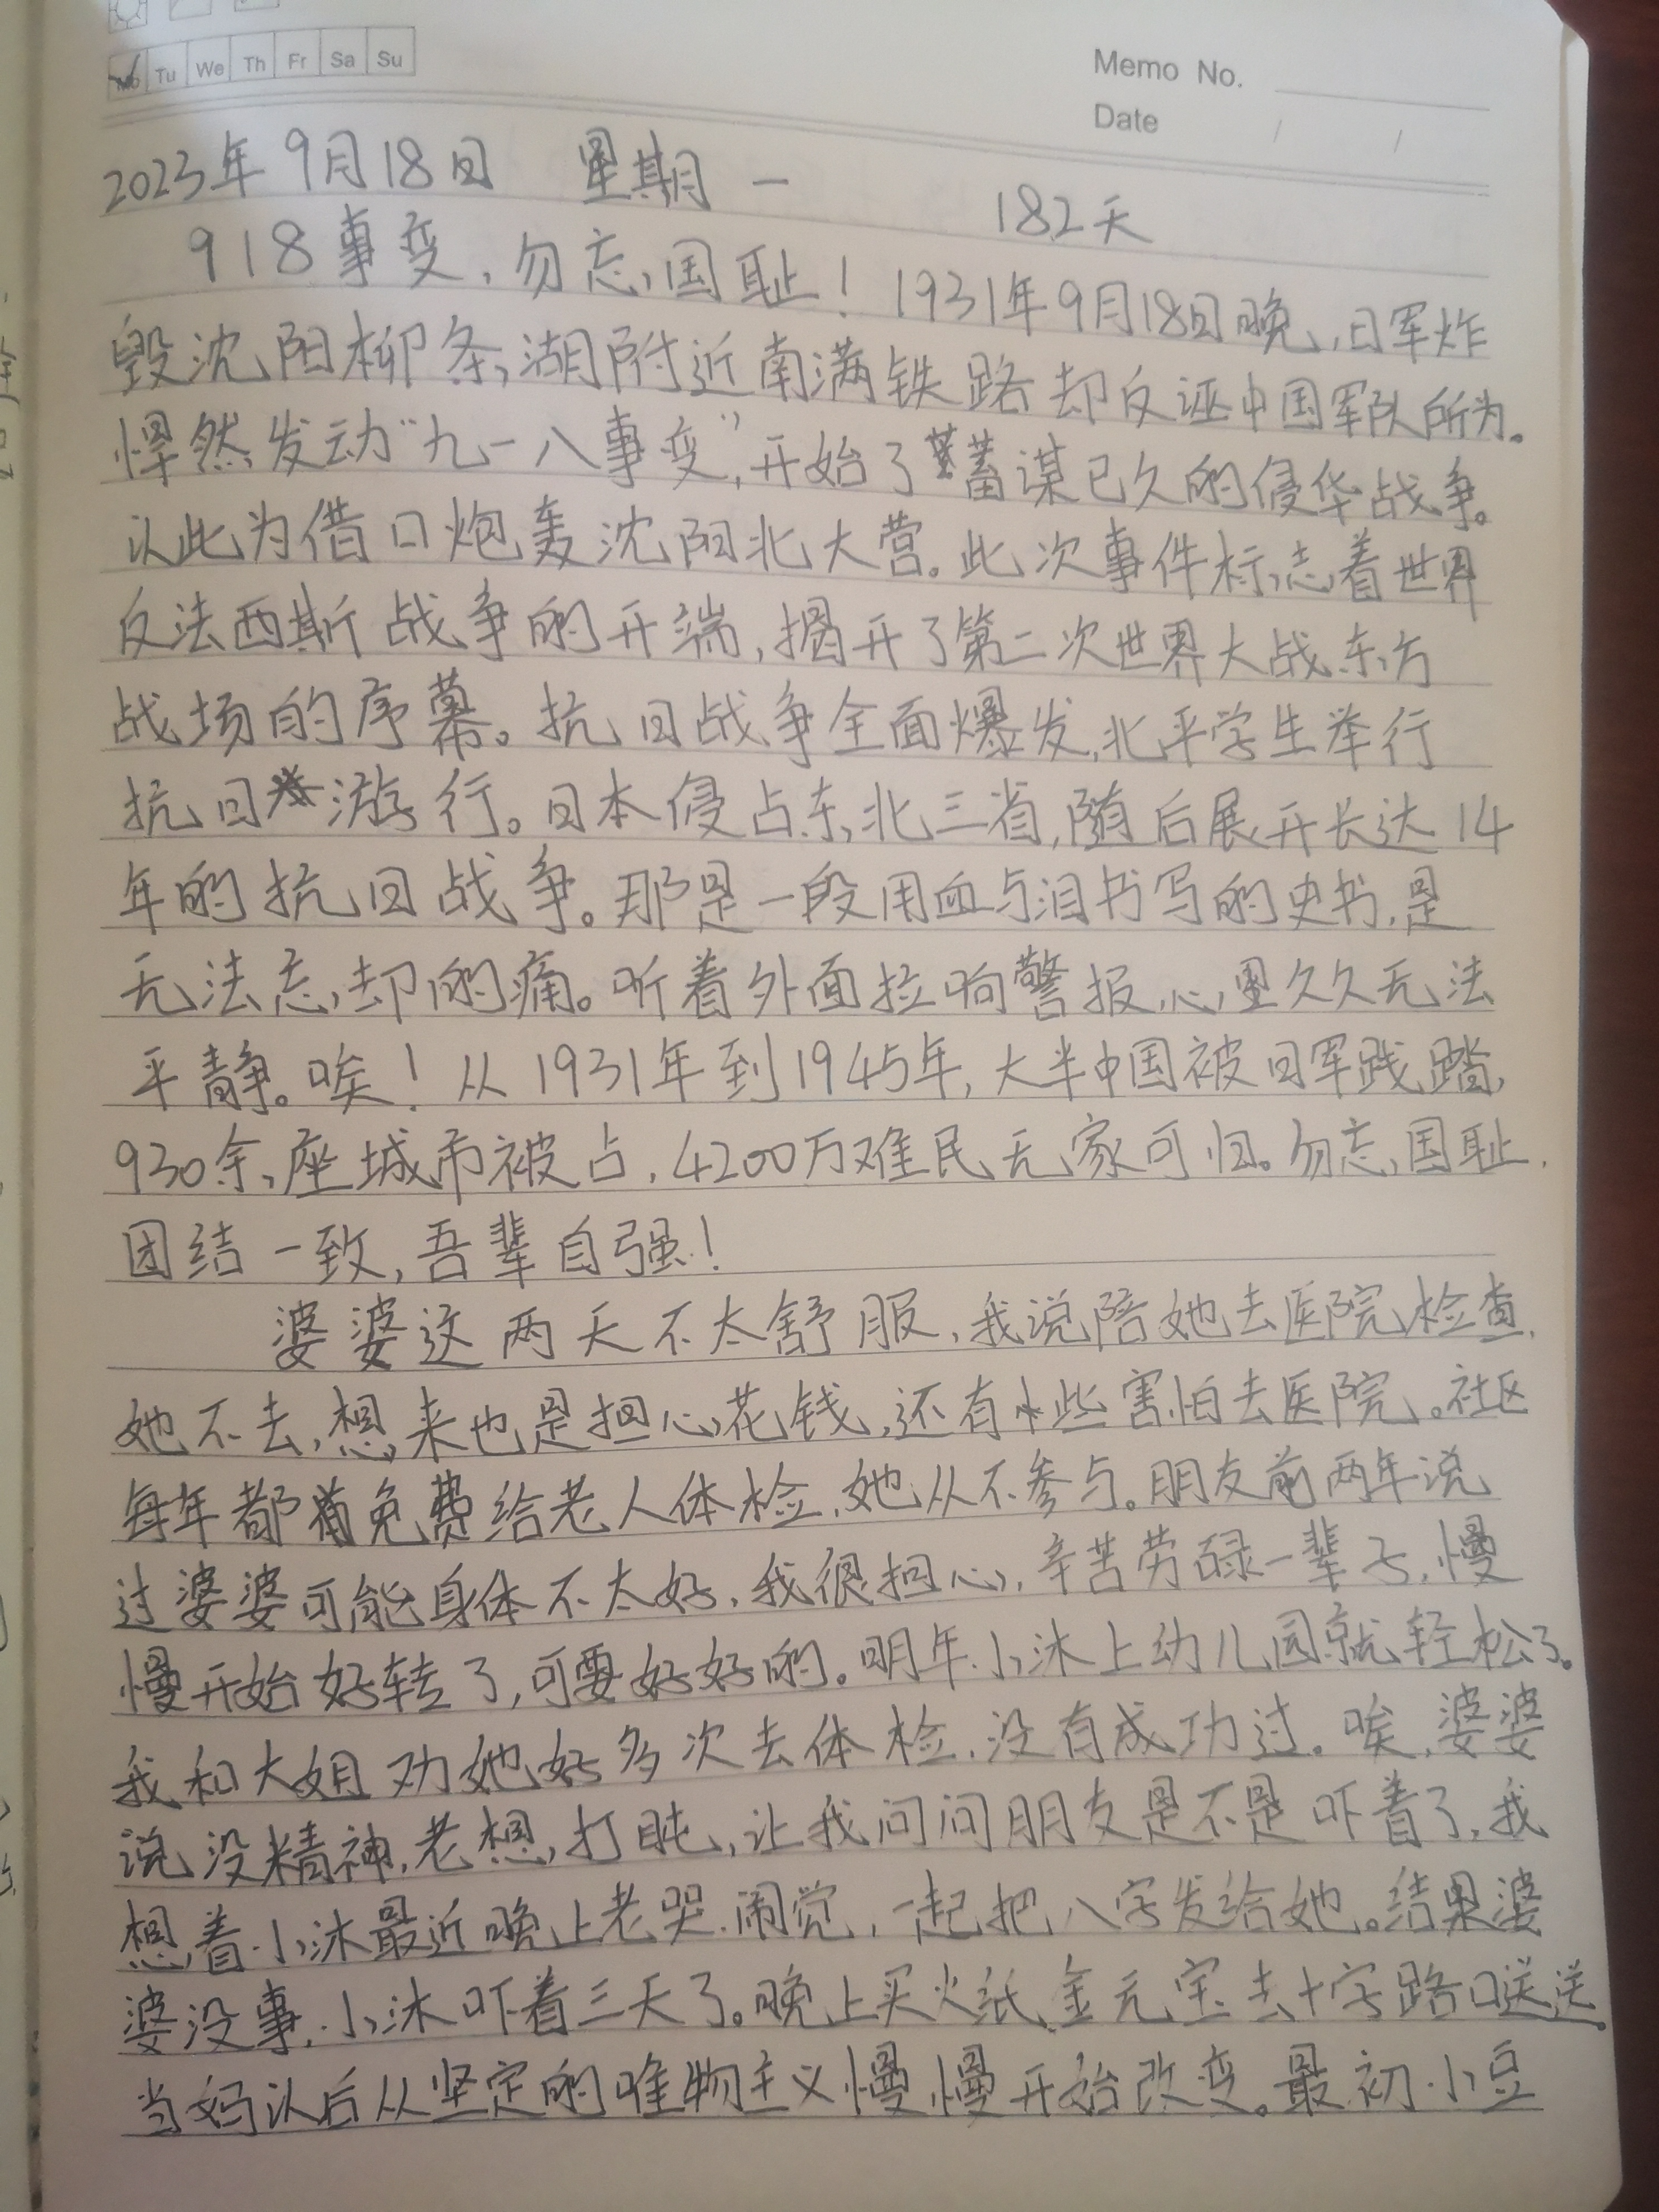 Mo Tu We Th Fr Sa Su
Memo No.
Date / /
2023年9月18日 星期一 182天
918事变,勿忘国耻!1931年9月18日晚,日军炸
毁沈阳柳条湖附近南满铁路却反诬中国军队所为。
悍然发动“九一八事变”,开始了蓄谋已久的侵华战争。
以此为借口炮轰沈阳北大营。此次事件标志着世界
反法西斯战争的开端,揭开了第二次世界大战东方
战场的序幕。抗日战争全面爆发,北平学生举行
抗日游行。日本侵占东北三省,随后展开长达14
年的抗日战争。那是一段用血与泪书写的史书,是
无法忘却的痛。听着外面拉响警报,心里久久无法
平静。唉!从1931年到1945年,大半中国被日军践踏,
930余座城市被占,4200万难民无家可归。勿忘国耻,
团结一致,吾辈自强!
婆婆这两天不太舒服,我说陪她去医院检查,
她不去,想来也是担心花钱,还有些害怕去医院。社区
每年都有免费给老人体检,她从不参与。朋友前两年说
过婆婆可能身体不太好,我很担心,辛苦劳碌一辈子,慢
慢开始好转了,可要好好的。明年小沐上幼儿园就轻松了。
我和大姐劝她好多次去体检,没有成功过。唉,婆婆
说没精神,老想打盹,让我问问朋友是不是吓着了,我
想着小沐最近晚上老哭闹觉,一起把八字发给她。结果婆
婆没事,小沐吓着三天了。晚上买火纸金元宝去十字路口送送。
当妈以后从坚定的唯物主义慢慢开始改变。最初小豆